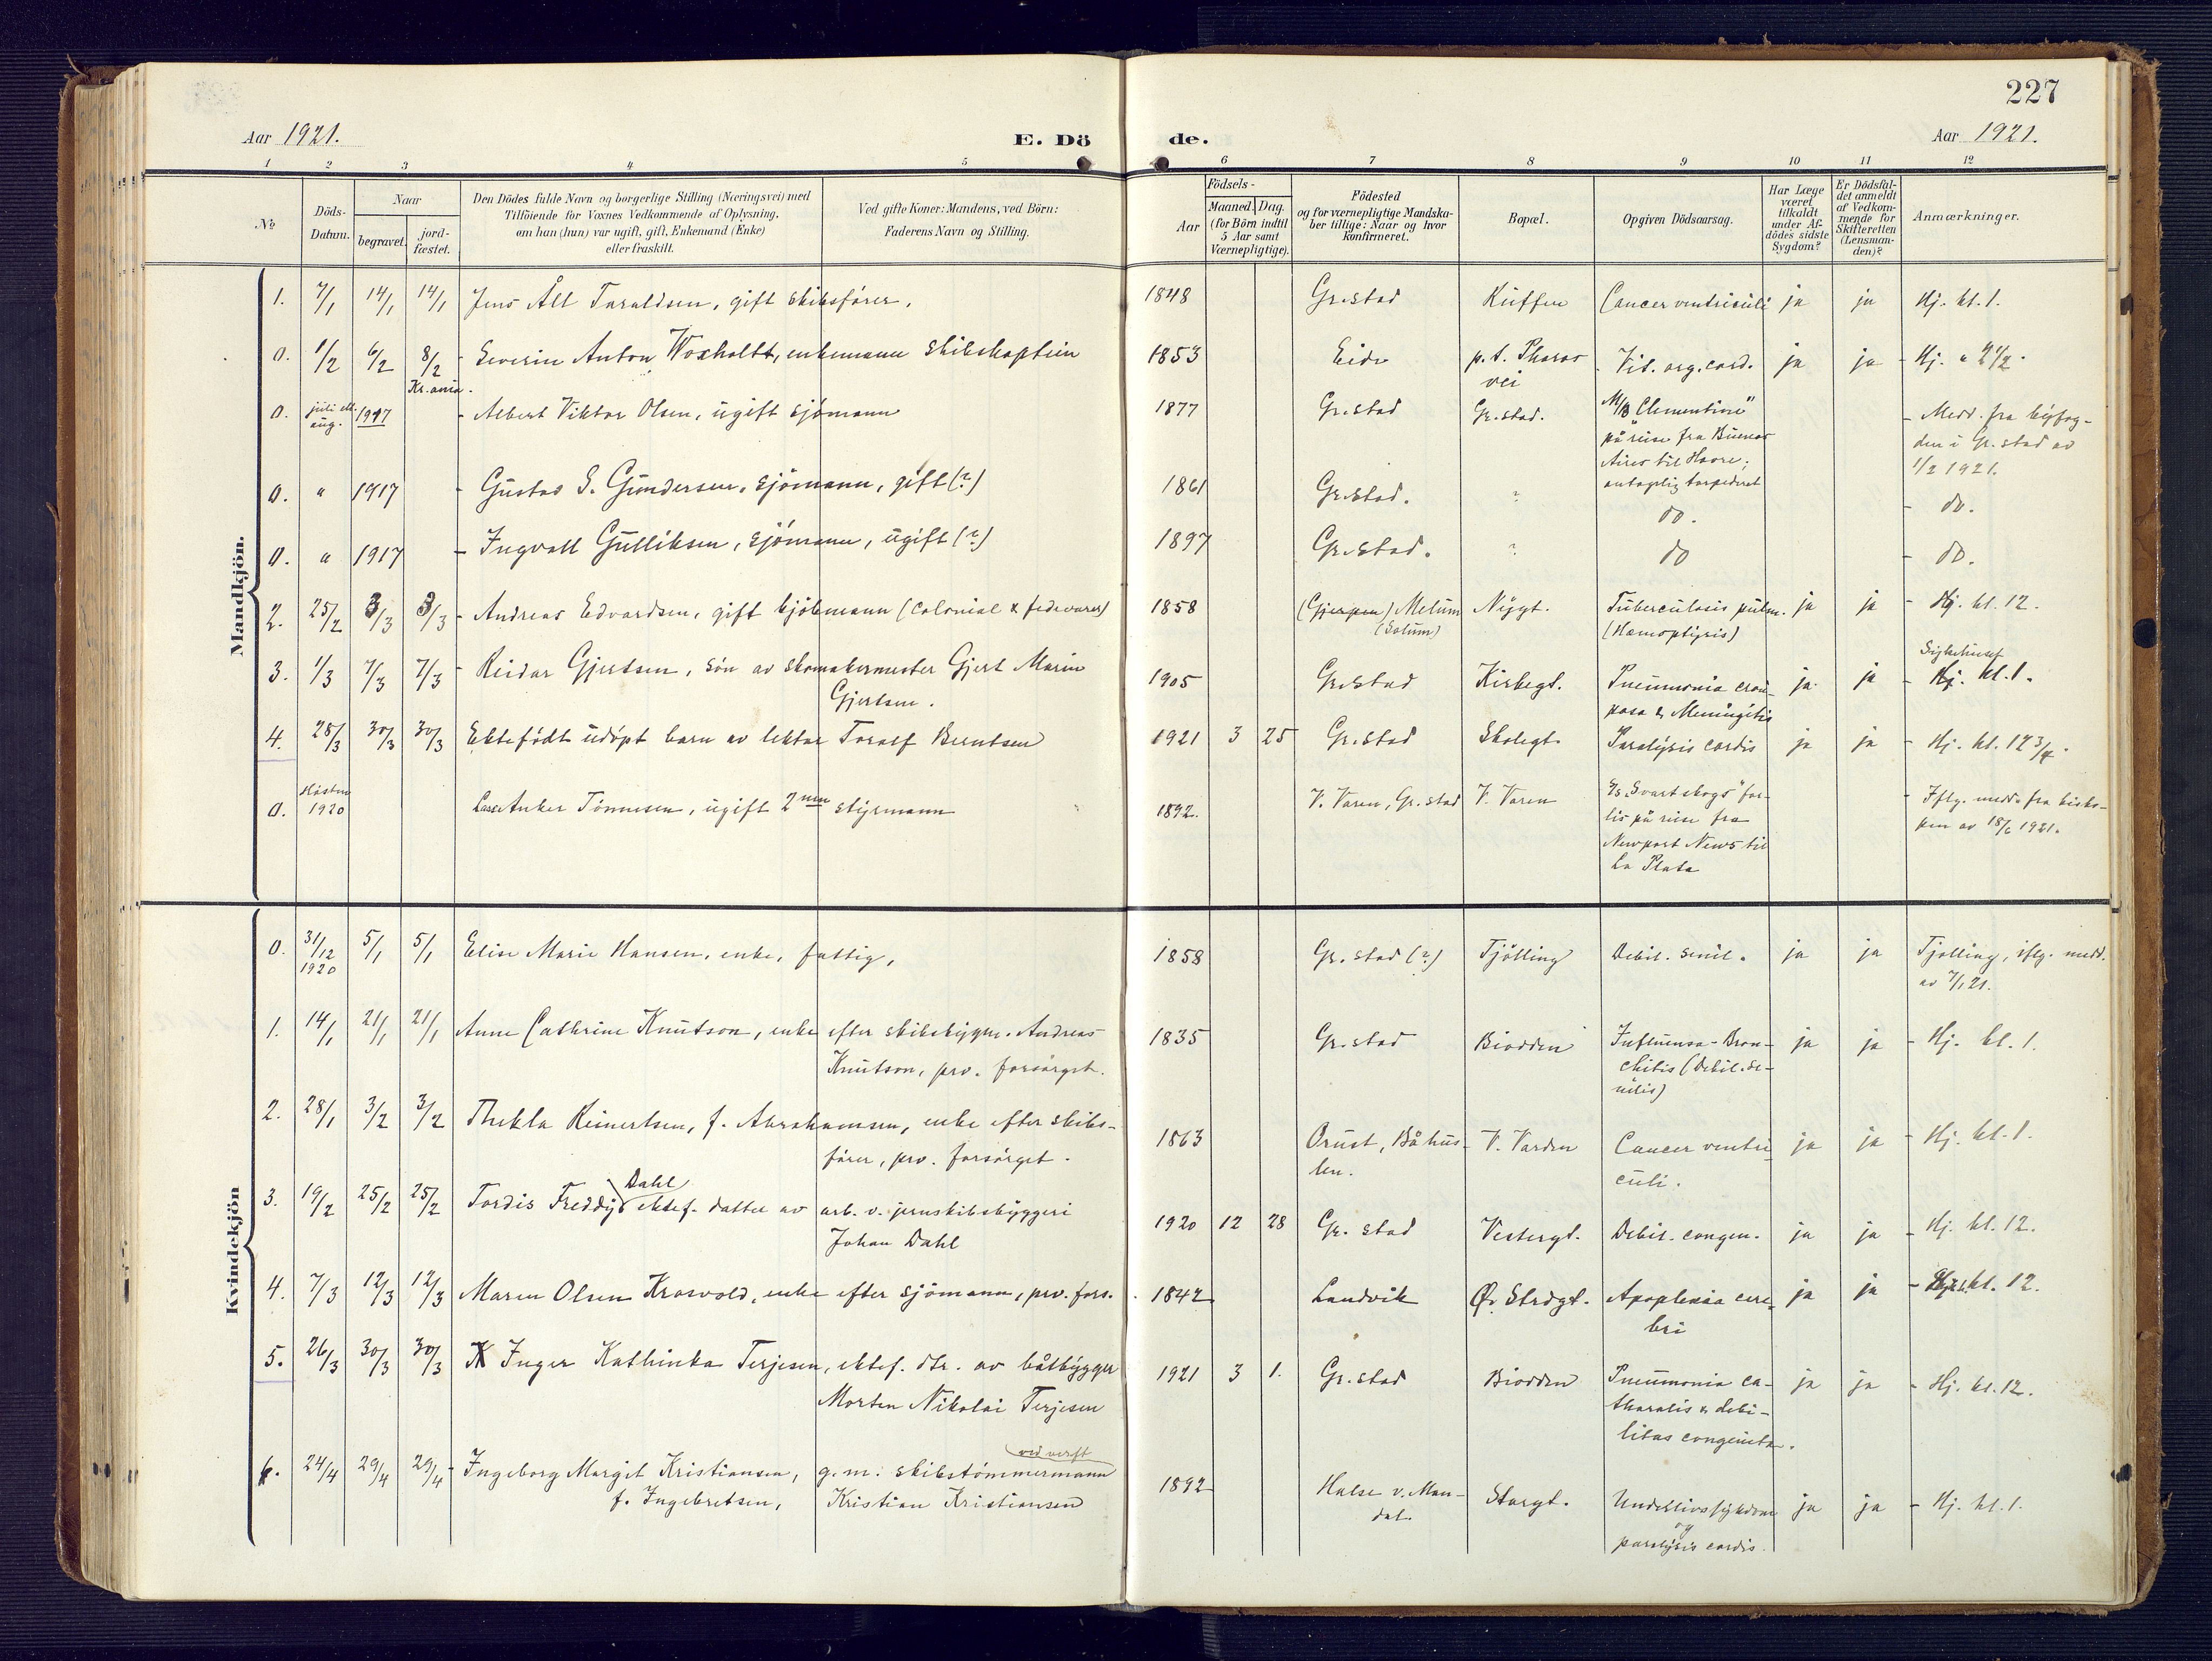 227
Aar 1921.
E. Dö
de.
Aar 1921.
1 2 3 4 5 6 7 8 9 10 11 12
№
Döds-
Datum.
Naar
begravet.
jord-
fæstet.
Den Dödes fulde Navn og borgerlige Stilling (Næringsvei) med
Tilföiende for Voxnes Vedkommende af Oplysning,
om han (hun) var ugift, gift, Enkemand (Enke)
eller fraskilt.
Ved gifte Koner: Mandens, ved Börn:
Faderens Navn og Stilling.
Födsels-
Aar
Maaned. Dag.
(for Börn indtil
5 Aar samt
Værnepligtige).
Födested
og for værnepligtige Mandska-
ber tillige: Naar og hvor
konfirmeret.
Bopæl.
Opgiven Dödsaarsag.
Har Læge
været
tilkaldt
under Af-
dödes sidste
Sygdom?
Er Dödsfal-
det anmeldt
af Vedkom-
mende for
Skifteretten
(Lensman-
den)?
Anmærkninger.
Mandkjön.
1. 7/1 14/1 14/1 Jens Alt Taraldsen, gift skibsfører. 1848 Gr.stad Kuffen Cancer ventriculi ja ja Hj. kl. 1.
0. 1/2 6/2 8/2 - Severin Anton Woxholtt, enkemann skibskaptein 1853 Eide p.t. Pharos Vit. org. cord. ja ja - Hj. " 2 1/2.
Kr.ania. vei
0. juli ell. 1917 - Albert Viktor Olsen, ugift sjømann 1877 Gr.stad Gr.stad. M/B "Clementine" - Medd. fra byfog-
aug. på reise fra Buenos den i Gr.stad av
Aires til Havre; 1/2 1921.
0. " 1917 - Gustav S. Gundersen, sjømann, gift (?) 1861 Gr.stad. ? antagelig torpederet
do. - do.
0. " 1917 - Ingvall Gulliksen, sjømann, ugift (?) 1897 Gr.stad. ? do - do.
2. 25/2 3/3 3/3 - Andreas Edvardsen, gift kjøbmann (colonial & fedevarer) 1858 (Gjerpen) Melum Nygt. Tuberculosis pulm. ja ja - Hj. kl. 12.
(Solum) (Hæmoptysis)
3. 1/3 7/3 7/3 - Reidar Gjertsen, søn av skomakermester Gjert Marin 1905 Gr.stad Kirkegt. Pneumonia crou- ja ja - Hj. kl. 1.
Sykehuset
Gjertsen. posa & Meningitis
4. 28/3 30/3 30/3 Ektefødt udøpt barn av lektor Toralf Berntsen 1921 3 25 Gr.stad Skolegt. Paralysis cordis ja ja - Hj. kl. 12 3/4.
0. Høsten Anker Tønnesen, ugift 2nen styrmann 1892. V. Varen, Gr.stad V. Varen "Svartskogs" for- - Iflg. medd. fra bisko-
1920 lis på reise fra pen av 18/6 1921.
Newport News til
La Plata
Kvindekjön
0. 31/12 5/1 5/1 Elise Marie Hansen, enke, fattig, 1858 Gr.stad (?) Tjølling Debil. senil. ja ja Tjølling, iflg. medd.
1920 av 7/1 21.
1. 14/1 21/1 21/1 Anne Cathrine Knutson, enke efter skibsbygm. Andreas 1835 Gr.stad Biodden Influensa - Bron- ja ja - Hj. kl. 1.
Knutson, prv. forsørget. chitis (Debil. se-
nilis)
2. 28/1 3/2 3/2 Thekla Reinertsen, f. Abrahamsen, enke efter skibs- 1863 Orust, Båhus- V. Varden Cancer ventri- ja ja - Hj. kl. 1.
fører, prv. forsørget. len. culi.
3. 19/2 25/2 25/2 Tordis Freddy Dahl ektef. datter av arb. v. jernskibsbyggeri 1920 12 28 Gr.stad Vestergt. Debil. congen. ja ja - Hj. kl. 12.
Johan Dahl
4. 7/3 12/3 12/3 Maren Olsen Krosvold, enke efter sjømann, prv. fors. 1842 Landvik Ø. Strdgt. Apoplexia cere- ja ja - kl. 12.
bri
5. 26/3 30/3 30/3 Inger Kathinka Terjesen, ektef. dtr. av båtbygger 1921 3 1. Gr.stad Biodden Pneumonia ca- ja ja - Hj. kl. 12.
Morten Nikolai Terjesen tharalis & debi-
litas congenita.
6. 24/4 29/4 29/4 - Ingeborg Margit Kristiansen, g.m: skibstømmermann 1892 Halse v. Man- Storgt. Underlivssykdom ja ja - Hj. kl. 1.
ved verft
f. Ingebretsen, Kristian Kristiansen dal. og
paralysis cordis.